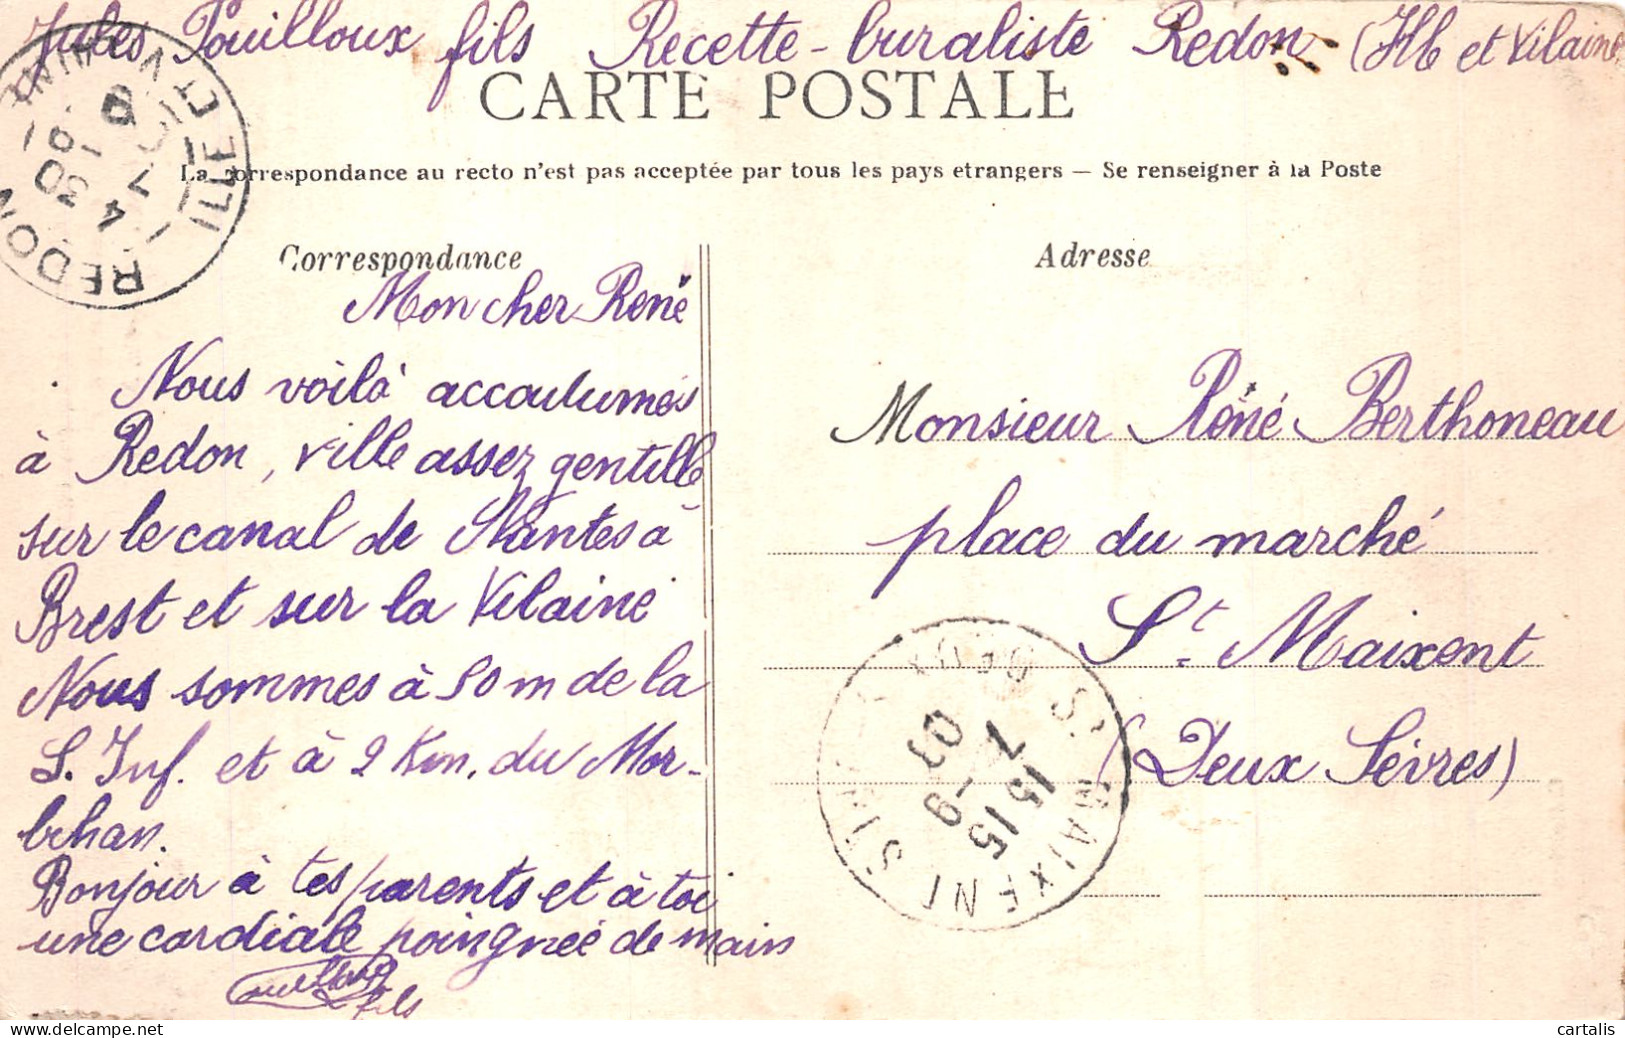 Jules Pouilloux fils Recette-buraliste Redon (Ille et Vilaine
CARTE POSTALE
La correspondance au recto n'est pas acceptée par tous les pays etrangers — Se renseigner à la Poste
REDON
ILLE-ET-VILAINE
4 30
7
Correspondance
Adresse
Mon cher René
Nous voilà accoutumés
à Redon, ville assez gentille
sur le canal de Nantes à
Brest et sur la Vilaine
Nous sommes à 50 m de la
L. Inf. et à 2 Km. du Mor-
bihan.
Bonjour à tes parents et à toi
une cordiale poingnée de main
Pouilloux
fils
Monsieur René Berthoneau
place du marché
St Maixent
(Deux Sèvres)
ST MAIXENT
15 15
7 -9
07
cartalis